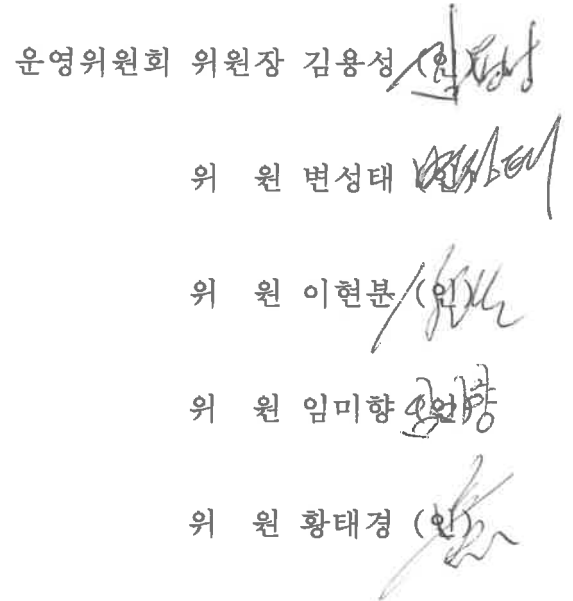 운영위원회 위원장 김용성 (인)
위 원 변성태 (인)
위 원 이현분 (인)
위 원 임미향 (인)
위 원 황태경 (인)